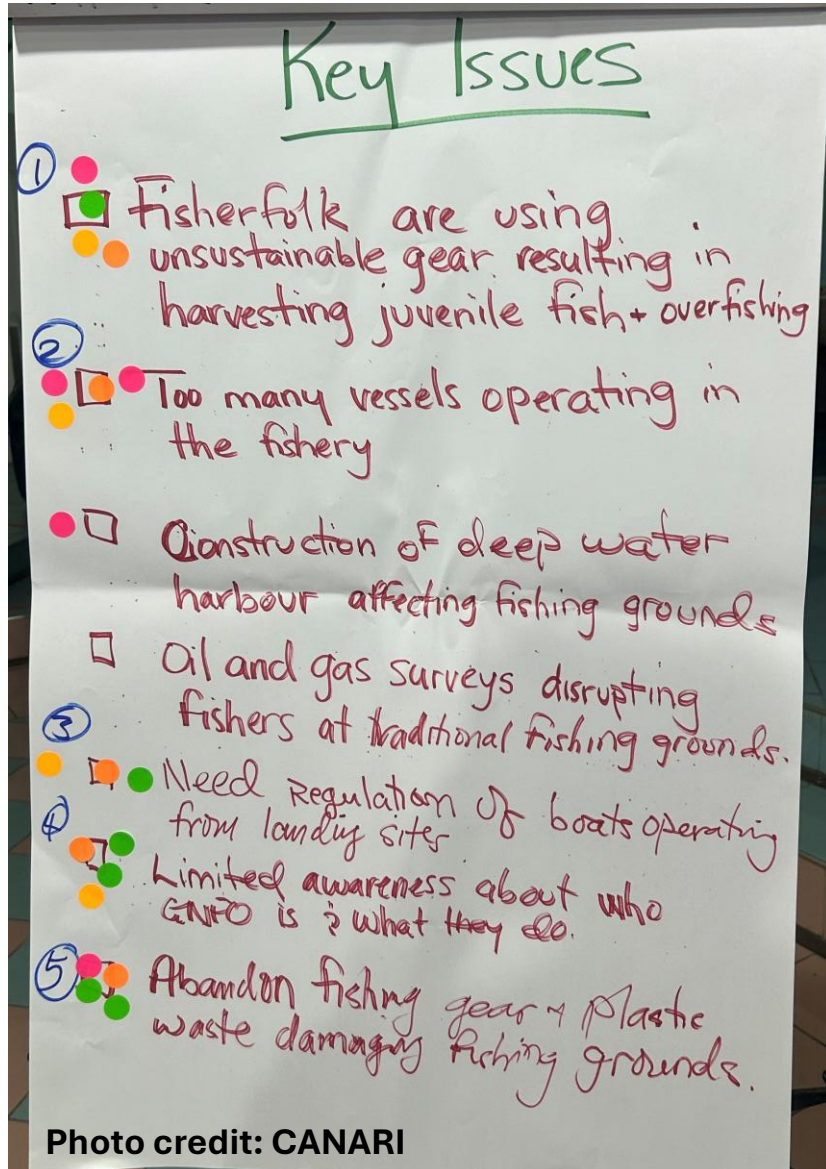 Key Issues
①
Fisherfolk are using
unsustainable gear resulting in
harvesting juvenile fish + overfishing
②
Too many vessels operating in
the fishery
Construction of deep water
harbour affecting fishing grounds
Oil and gas surveys disrupting
fishers at traditional fishing grounds.
③
Need Regulation of boats operating
from landing sites
4
Limited awareness about who
GNFO is & what they do.
⑤
Abandon fishing gear + plastic
waste damaging fishing grounds.
Photo credit: CANARI